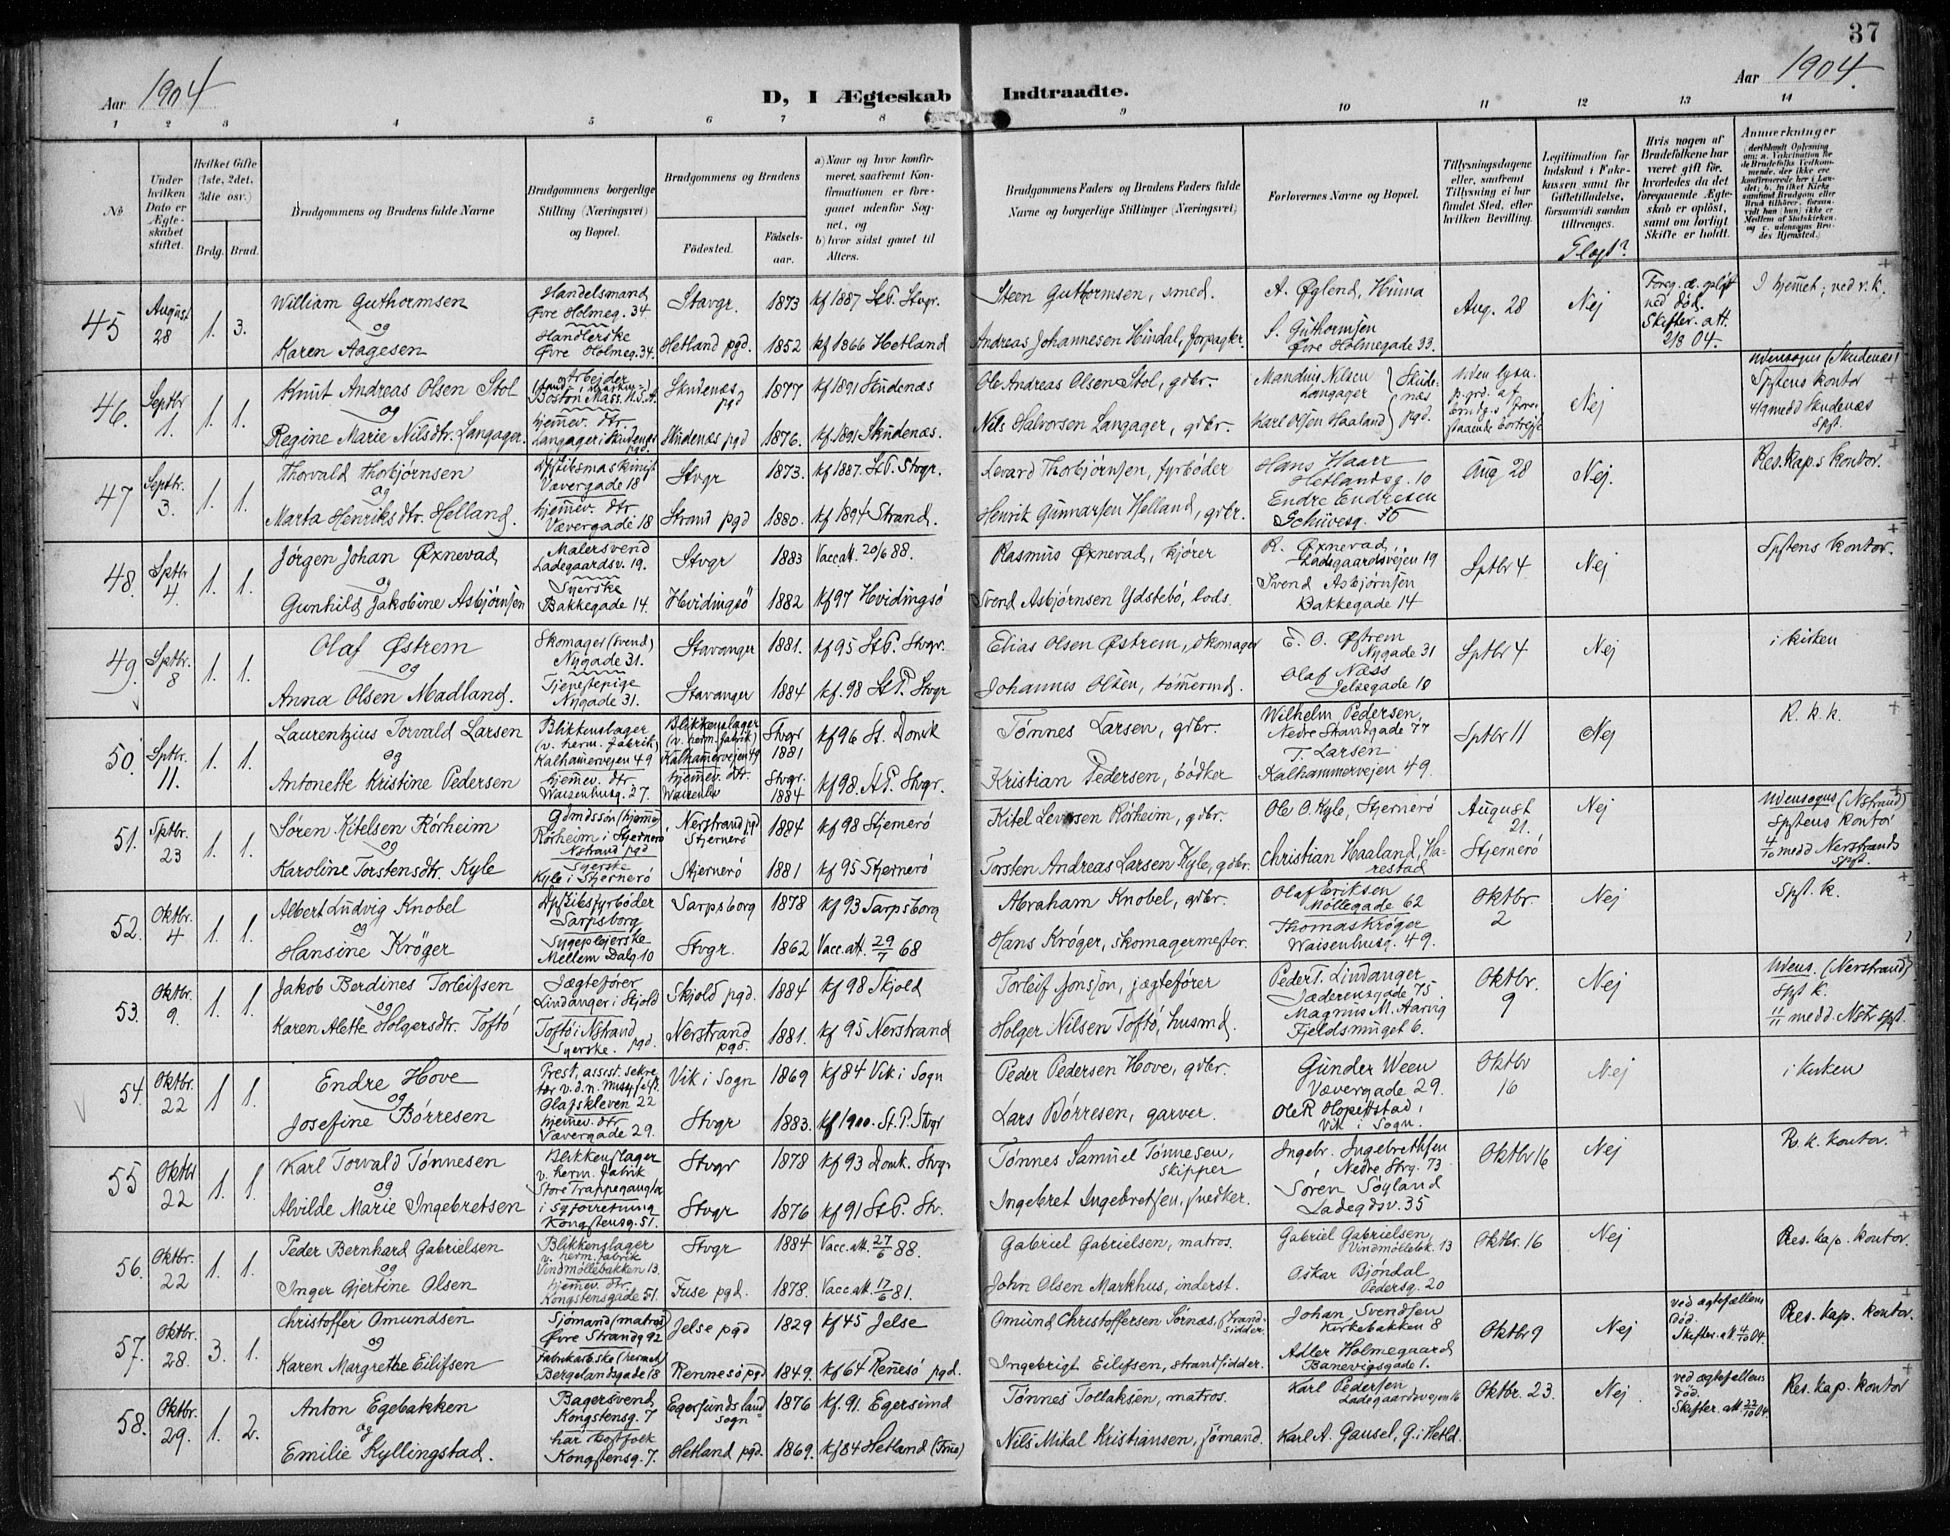 37
Aar 1904
D, I Ægteskab Indtraadte.
Aar 1904.
1 2 3 4 5 6 7 8 9 10 11 12 13 14
No
Under hvilken Dato er Ægteskabet stiftet.
Hvilket Gifte (1ste, 2det, 3die osv.)
Brdg. Brud.
Brudgommens og Brudens fulde Navne
Brudgommens borgerlige Stilling (Næringsvei) og Bopæl.
Brudgommens og Brudens
Fødested.
Fødselsaar.
a) Naar og hvor konfirmeret, saafremt Konfirmationen er foregaaet udenfor Sognet, og
b) hvor sidst gaaet til Alters.
Brudgommens Faders og Brudens Faders fulde Navne og borgerlige Stillinger (Næringsvei)
Forlovernes Navne og Bopæl.
Tillysningsdagene eller, saafremt Tillysning ei har fundet Sted, efter hvilken Bevilling.
Legitimation for Indskud i Enkekassen samt for Giftetilladelse, forsaavidt saadan tiltrænges.
Slægt?
Hvis nogen af Brudefolkene har været gift før, hvorledes da det foregaaende Ægteskab er opløst, samt om lovligt Skifte er holdt.
Anmærkninger
45 August 28 1. 3.
William Guthormsen
og
Karen Aagesen
Handelsmand
Øvre Holmeg. 34
Handlerske
Øvre Holmeg. 34.
Stavgr. 1873 kf 1887 St P. Stvgr.
Hetland pgd. 1852 kf 1866 Hetland
Steen Guthormsen, smed.
Andreas Johannesen Hindal, forpagter.
A. Øglend, Hinna
S. Guthormsen
Øvre Holmegade 33.
Aug. 28 Nej
Foreg. æ. opløst
ved død.
Skifter. att.
2/8 04.
I hjemet; ved r. k.
46. Septbr 1. 1. 1.
Knut Andreas Olsen Stol
og
Regine Marie Nilsdtr. Langager.
Arbejder
Boston Mass. U.S.A.
hjemev. dtr.
Langager i Skudenes pgd.
Skudenæs pgd 1877 kf 1891 Skudenæs
Skudenæs pgd 1876. kf. 1891 Skudenæs.
Ole Andreas Olsen Stol, gdbr.
Nils Halvorsen Langager, gdbr.
Mandius Nilsen Langager
Karl Olsen Haaland
Skudenæs pgd.
Uden lysn.
p. grd. af
brudg.s forestaaende bortrejse
Nej
Udensogns (Skudenæs)
Spstens kontor
4/9 medd Skudenæs
Spst.
47 Septbr. 3. 1. 1.
Thorvald Thorbjørnsen
og
Marta Henriksdtr. Helland.
Dpskibsmaskinist
Vævergade 18
hjemev. dtr
Vævergade 18
Stvgr 1873. kf 1887. St P. Stvgr.
Strand pgd 1880. kf 1894 Strand.
Levard Thorbjørnsen, fyrbøder
Henrik Gunnarsen Helland, gdbr.
Hans Haarr
Hetlandsg. 10
Endre Endresen
Schivesg. 36
Aug 28 Nej.
Res. Kap.s kontor.
48. Sptbr 4. 1. 1.
Jørgen Johan Øxnevad
og
Gunhild Jakobine Asbjørnsen
Malersvend
Ladegaardsv. 19.
Syerske
Bakkegade 14.
Stvgr 1883 Vacc att. 20/6 88.
Hvidingsö 1882 kf 97 Hvidingsö
Rasmus Øxnevad, kjører
Svend Asbjørnsen Ydstebö, lods.
R. Øxnevad,
Ladegaardsvejen 19
Svend Asbjørnsen
Bakkegade 14
Sptbr 4 Nej
Spstens kontor.
49. Sptbr. 8 1. 1.
Olaf Østrem
og
Anna Olsen Madland.
Skomager (svend)
Nygade 31.
Tjenestepige
Nygade 31.
Stavanger 1881. kf 95 St P. Stvgr.
Stavanger 1884 kf. 98 St P. Stvgr
Elias Olsen Østrem, skomager
Johannes Olsen, tømermd.
E. O. Østrem
Nygade 31
Olaf Næss
Jelsegade 10
Sptbr 4 Nej
i kirken
50. Sptbr. 11. 1. 1.
Laurentzius Torvald Larsen
og
Antonette Kristine Pedersen
Blikkenslager
(v. herm. fabrik)
Kalhamervejen 49
hjemev. dtr
Waisenhusg. 27.
Blikkenslager
(v. herm. fabrik)
Kalhamervejen 49
hjemev. dtr.
Stvgr 1881 kf 96 St. Domk
Stvgr. 1884 kf 98. St P. Stvgr.
Tønnes Larsen, gdbr.
Kristian Pedersen, bødker
Wilhelm Pedersen,
Nedre Strandgade 77
T. Larsen
Kalhammervejen 49.
Sptbr 11 Nej
R. k. k.
51. Sptbr. 23 1. 1.
Søren Kitelsen Rørheim
og
Karoline Torstensdtr. Kyle
Gdmdssøn (hjeme)
Rørheim i Stjernerö
Nstrand pgd
Syerske
Kyle i Stjernerö
Nerstrand pgd Stjernerö 1884 kf 98 Stjernerö
Stjernerö 1881 kf 95 Stjernerö
Kitel Levorsen Rørheim, gdbr.
Torsten Andreas Larsen Kyle, gdbr.
Ole O. Kyle, Stjernerö
Christian Haaland, Harestad
August 21.
Stjernerö
Nej
Udensogns (Nstrand)
Spstens kontor
4/10 medd Nerstrands
Spst.
52. Oktbr. 4 1. 1.
Albert Ludvig Knobel
og
Hansine Krøger
Dpskibsfyrbøder
Sarpsborg
Sygeplejerske
Mellem Dalg. 10
Sarpsborg 1878 kf 93 Sarpsborg
Stvgr. 1862 Vacc. att. 29/7 68
Abraham Knobel, gdbr.
Hans Krøger, skomagermester.
Olaf Eriksen
Møllegade 62
Thomas Krøger
Waisenhusg. 49.
Oktbr. 2 Nej
Spst. k.
53. Oktbr. 9. 1. 1.
Jakob Berdines Torleifsen
og
Karen Alette Holgersdtr. Toftö
Jægtefører
Lindanger i Skjold
Toftö i Nstrand pgd.
Syerske.
Skjold pgd. 1884 kf 98 Skjold
Nerstrand pgd. 1881. kf 95 Nerstrand
Torleif Jonsson, jægtefører
Holger Nilsen Toftö, husmd.
Peder T. Lindanger
Jæderensgade 75
Magnus M. Aarvig
Fjeldsmuget 6.
Oktbr. 9 Nej
Udens. (Nerstrand)
Spst k.
11/11 medd. Nstr spst.
54. Oktbr. 22 1 1.
Endre Hove
og
Josefine Børresen
Prest, assist. sekretær v. d. n. Miss. selsk.
Olafskleven 22
hjemev. dtr
Vævergade 29.
Vik i Sogn 1869 kf 84 Vik i Sogn
Stvgr 1883. kf 1900. St. P. Stvgr
Peder Pedersen Hove, gdbr.
Lars Børresen, garver.
Gunder Ween
Vævergade 29.
Ole R. Hopestad,
Vik i Sogn.
Oktbr 16 Nej
i kirken
55 Oktbr 22 1. 1.
Karl Torvald Tønnesen
og
Alvilde Marie Ingebretsen
Blikkenslager
v. herm. fabrik
Store Trappegang
i syforretning
Kongstensg. 51.
Stvgr 1878 kf 93 Domk. Stvgr
Stvgr 1876 kf 91 St P. Stv.
Tønnes Samuel Tønnesen, skipper
Ingebret Ingebretsen, snedker.
Ingebr. Ingebrethsen
Nedre Strg. 73
Søren Soyland
Ladegdsv. 35
Oktbr 16 Nej
R. k. kontor.
56. Oktbr. 22 1. 1.
Peder Bernhard Gabrielsen
og
Inger Gjertine Olsen
Blikkenslager
v. herm. fabrik
Vindmöllebakken 13.
hjemev. dtr.
Kongstensgade 51.
Stvgr 1884 Vacc. att. 27/6 88.
Fuse pgd. 1878. Vacc. att. 17/6 81.
Gabriel Gabrielsen, matros.
John Olsen Markhus, inderst.
Gabriel Gabrielsen,
Vindmöllebk. 13
Oskar Bjöndal
Pedersg. 20
Oktbr. 16 Nej
Res. kap. kontor.
57. Oktbr. 28. 3. 1.
Christoffer Omundsen
og
Karen Margrethe Eilifsen
Sjömand (matros)
Øvre Strandg 92
Fabrikarb.ske (hermet)
Bergelandsgade 18
Jelse pgd 1829 kf 45 Jelse
Rennesö pgd 1849. kf 64 Renesö pgd.
Omund Christoffersen Sørnæs, strandsidder.
Ingebrigt Eilifsen, strandsidder.
Johan Svendsen
Kirkebakken 8
Adler Holmegaard
Banevigsgade 1.
Oktbr 9 Nej
ved ægtefællens
død.
Skifter. att. 4/10 04.
Res. kap. kontor.
58. Oktbr. 29. 1. 2.
Anton Egebakken
og
Emilie Kyllingstad.
Bagersvend
Kongstensg. 7
har kostfolk
Kongstensg. 7.
Egersunds landsogn 1876 kf. 91. Egersund
Hetland pgd. 1869. kf 84 Hetland (Frue)
Tønnes Tollaksen, matros.
Nils Mikal Kristiansen, sömand.
Karl Pedersen
Ladegaardsvejen 16
Karl A. Gausel, G. i Hetld.
Oktbr. 23. Nej
ved ægtefællens
død.
Skifter. att. 22/10 04.
Res. kap. kontor